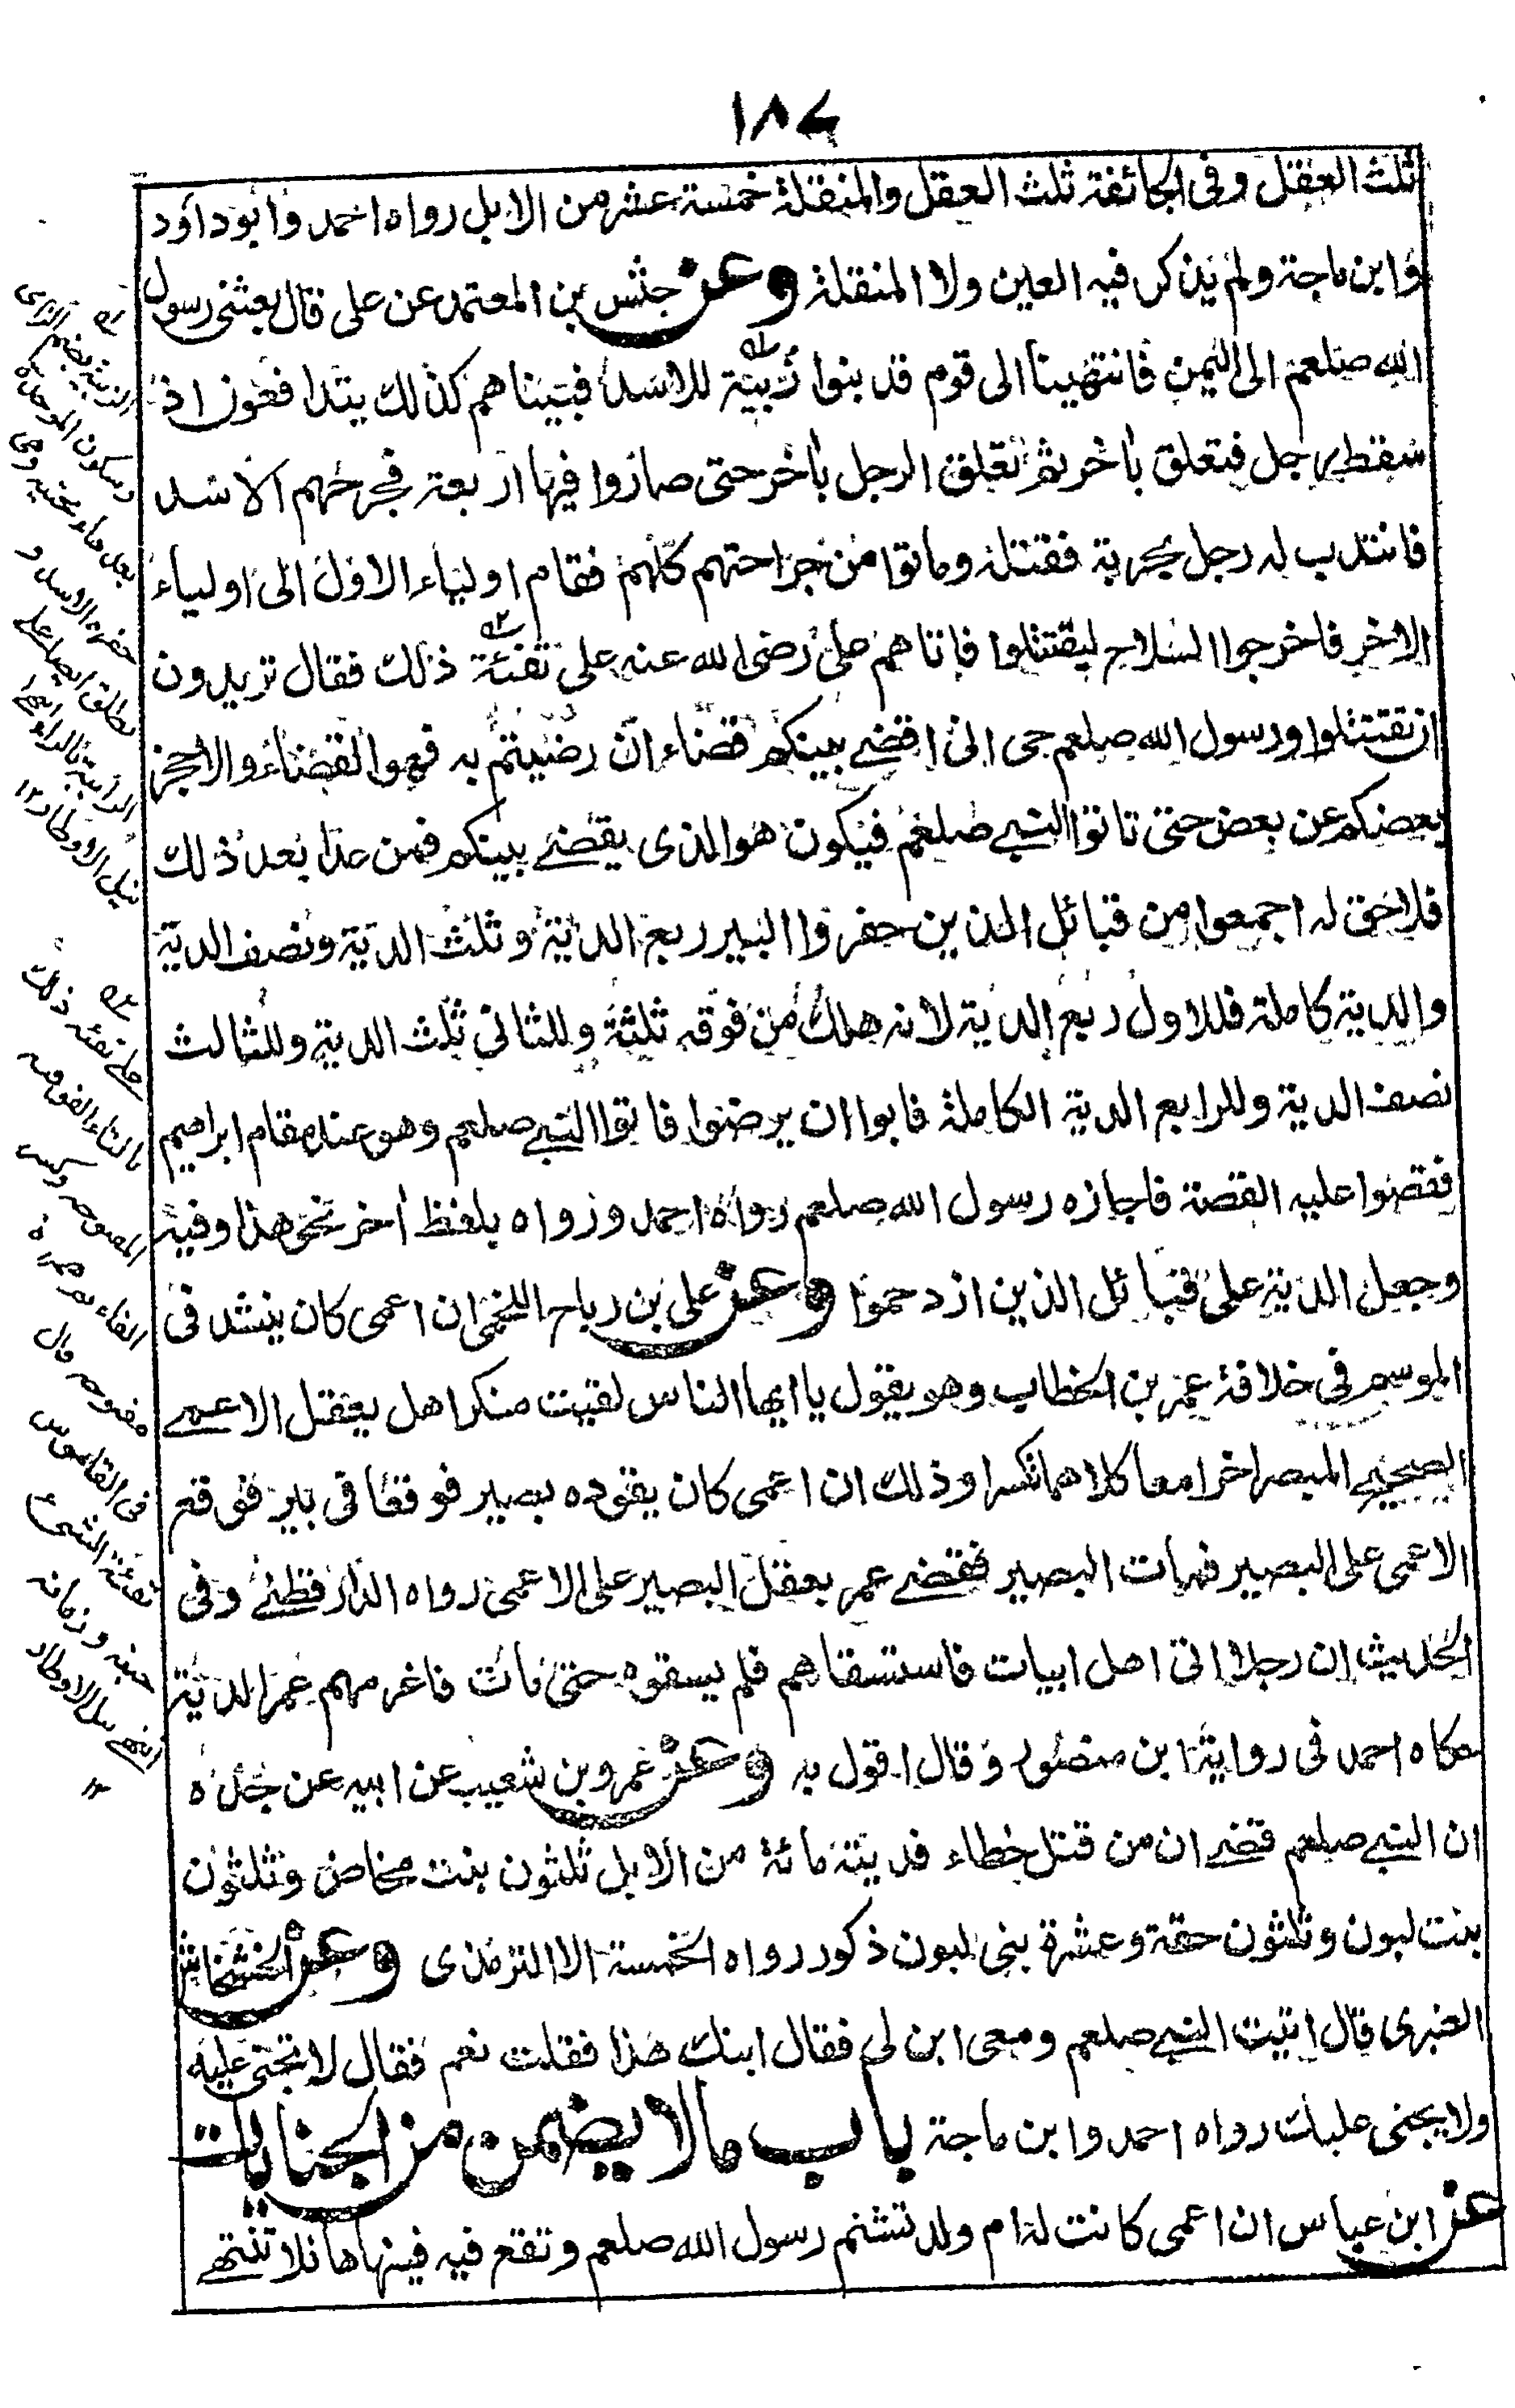 ١٨٧
ثلث العقل وفى الجائفة ثلث العقل والمنقلة خمسة عشر من الابل رواه احمد وابوداؤد
وابن ماجة ولم يذكر فيه العين ولا المنقلة وعن حنش بن المعتمد عن على قال بعثنى رسول
الله صلعم الى اليمن فانتهينا الى قوم قد بنوا زبية للاسد فبينا هم كذلك يتدافعون اذ
سقط رجل فتعلق باخر ثم تعلق الرجل باخر حتى صاروا فيها اربعة فجرحهم الاسد
فانتدب له رجل بحربة فقتله وماتوا من جراحتهم كلهم فقام اولياء الاول الى اولياء
الاخر فاخرجوا السلاح ليقتتلوا فاتاهم على رضى الله عنه على تفئة ذلك فقال تريدون
ان تقتتلوا ورسول الله صلعم حى انى اقضى بينكم قضاء ان رضيتم به فهو القضاء والاحجز
بعضكم عن بعض حتى تاتوا النبى صلعم فيكون هو الذى يقضى بينكم فمن عدا بعد ذلك
فلاحق له اجمعوا من قبائل الذين حفروا البير ربع الدية وثلث الدية ونصف الدية
والدية كاملة فللاول ربع الدية لانه هلك من فوقه ثلثة وللثانى ثلث الدية وللثالث
نصف الدية وللرابع الدية الكاملة فابوا ان يرضوا فاتوا النبى صلعم وهو عند مقام ابراهيم
فقصوا عليه القصة فاجازه رسول الله صلعم رواه احمد ورواه بلفظ اخر نحو هذا وفيه
وجعل الدية على قبائل الذين ازدحموا وعن على بن رباح اللخمى ان اعمى كان ينشد فى
الموسم فى خلافة عمر بن الخطاب وهو يقول يا ايها الناس لقيت منكرا هل يعقل الاعمى
الصحيح المبصرا خرا معا كلاهما تكسرا وذلك ان اعمى كان يقوده بصير فوقعا فى بير فوقع
الاعمى على البصير فمات البصير فقضى عمر بعقل البصير على الاعمى رواه الدارقطنى وفى
الحديث ان رجلا اتى اهل ابيات فاستسقاهم فلم يسقوه حتى مات فاغرمهم عمر الدية
حكاه احمد فى رواية ابن منصور وقال اقول به وعن عمرو بن شعيب عن ابيه عن جده
ان النبى صلعم قضى ان من قتل خطاء فديته مائة من الابل ثلثون بنت مخاض وثلثون
بنت لبون وثلثون حقة وعشرة بنى لبون ذكور رواه الخمسة الا الترمذى وعن الخشخاش
العنبرى قال اتيت النبى صلعم ومعى ابن لى فقال ابنك هذا فقلت نعم فقال لا تجنى عليه
ولا يجنى عليك رواه احمد وابن ماجة باب مالا يضمن من الجنايات
عن ابن عباس ان اعمى كانت له ام ولد تشتم رسول الله صلعم وتقع فيه فينهاها فلا تنتهى
الزبية بضم الزاى
وسكون الموحدة
بعدها تحتية وهى
حفرة الاسد و
تطلق ايضا على
الرابية بالراء
نيل الاوطار ١٢
على تفئة ذلك
بالتاء الفوقية
المفتوحة وكسر
الفاء ثم همزة
مفتوحة قال
فى القاموس
تفئة الشئ
حينه وزمانه
انتهى نيل الاوطار
١٢